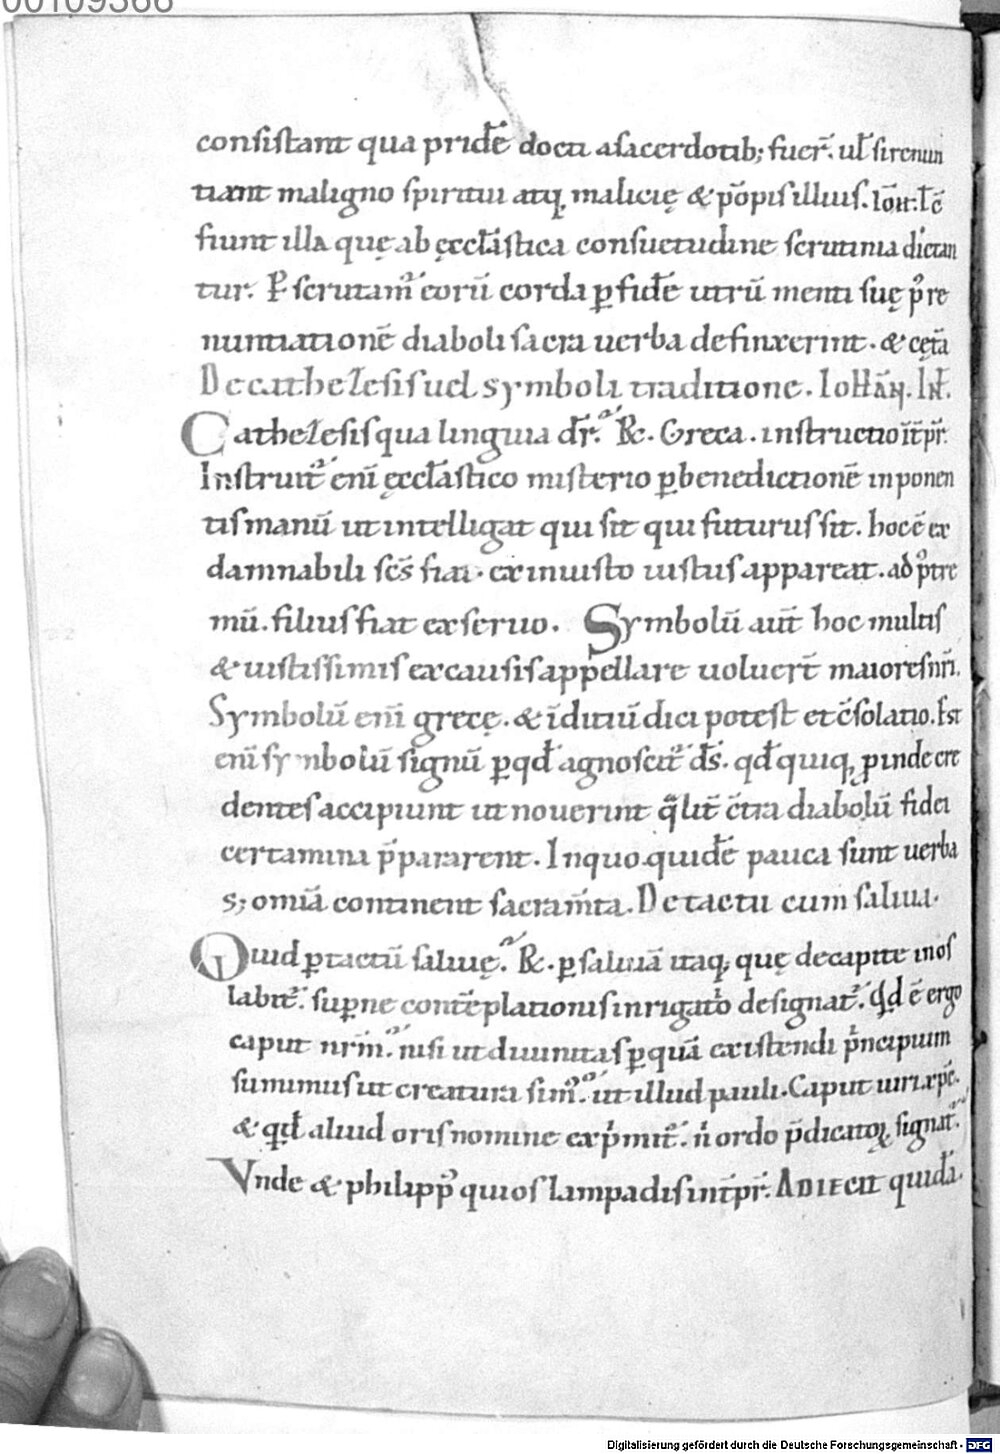 00109366
consistant qua pridē docti a sacerdotib; fuer̄. ul̄ si renun
tiant maligno spiritui atq, malicię & pōpis illius. Ioħ. I.c̄
fiunt illa quę ab ęccl̄astica consuetudine scrutinia dictan
tur. P scrutam̄ eorū corda p fidē utrū menti suę p̉ re
nuntiationē diaboli sacra uerba definxerint. & cęt̄a
De cathezesi uel symboli traditione. IOHĀN. INT̄.
Cathezesis qua lingua dr̄. R̄. Greca. instructio īt̄pr̄.
Instruit̉ enī ęccl̄astico misterio p benedictionē inponen
tis manū ut intelligat qui sit qui futurus sit. hoc ē ex
damnabili sc̄s fiat. ex iniusto iustus appareat. ad p̉tre
mū. filius fiat ex seruo. Symbolū aut̄ hoc multis
& iustissimis ex causis appellare uoluer̄t maiores nr̄i.
Symbolū enī grecę. & īditiū dici potest et c̄solatio. Est
enī symbolū signū p qd̄ agnoscit̉ d̄s. qd̄ quiq, pinde cre
dentes accipiunt ut nouerint q̄lit̄ c̄tra diabolū fidei
certamina p̄pararent. In quo quidē pauca sunt uerba
s; omīa continent sacram̄ta. De tactu cum saliua.
Quid p tactū saliuę. R̄. p saliuā itaq, quę de capite in os
labit̉. supne contēplationis inrigatio designat̉. Qd̄ ē ergo
caput nrm̄. nisi ut diuinitas p quā existendi p̉ncipium
sumimus ut creatura sim̉. ut illud pauli. Caput uiri xp̄c.
& qd̄ aliud oris nomine exp̉mit̉. n̄ ordo p̄dicatoꝝ signat̉.
Vnde & philipp̉ qui os lampadis int̄pr̄. ADIECIT quidā.
Digitalisierung gefördert durch die Deutsche Forschungsgemeinschaft - DFG